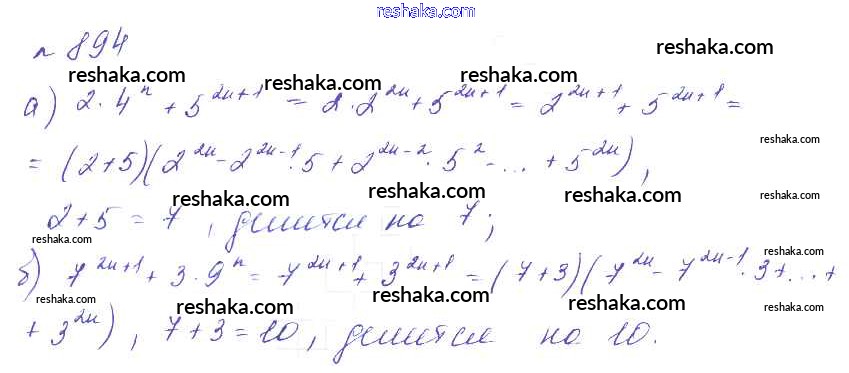 reshaka.com
№ 894
reshaka.com
reshaka.com reshaka.com reshaka.com reshaka.com
а) 2·4ⁿ + 5²ⁿ⁺¹ = 2·2²ⁿ + 5²ⁿ⁺¹ = 2²ⁿ⁺¹ + 5²ⁿ⁺¹ =
reshaka.com
= (2+5)(2²ⁿ - 2²ⁿ⁻¹·5 + 2²ⁿ⁻²·5² - ... + 5²ⁿ),
reshaka.com reshaka.com reshaka.com reshaka.com
2+5 = 7, делится на 7;
reshaka.com reshaka.com
б) 7²ⁿ⁺¹ + 3·9ⁿ = 7²ⁿ⁺¹ + 3²ⁿ⁺¹ = (7+3)(7²ⁿ - 7²ⁿ⁻¹·3 + ... +
reshaka.com reshaka.com reshaka.com reshaka.com reshaka.com
+ 3²ⁿ), 7+3=10, делится на 10.